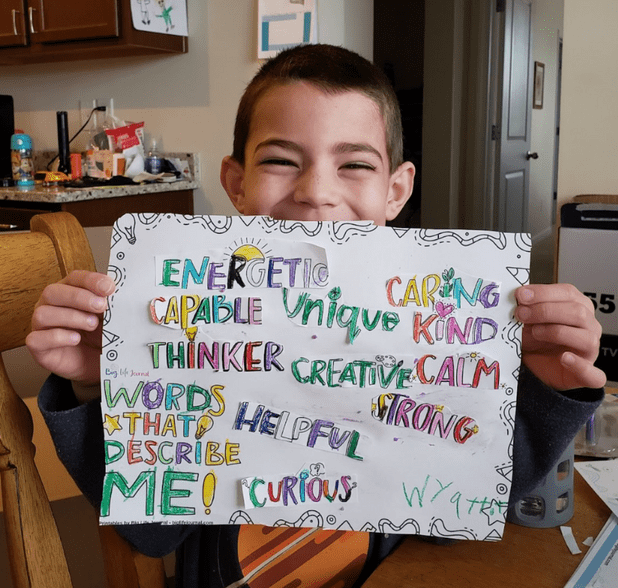 ENERGETIC
CARING
CAPABLE
Unique
KIND
THINKER
CREATIVE
CALM
Big Life Journal
WORDS
THAT
DESCRIBE
ME!
STRONG
HELPFUL
CURIOUS
Wyatt
55
TV